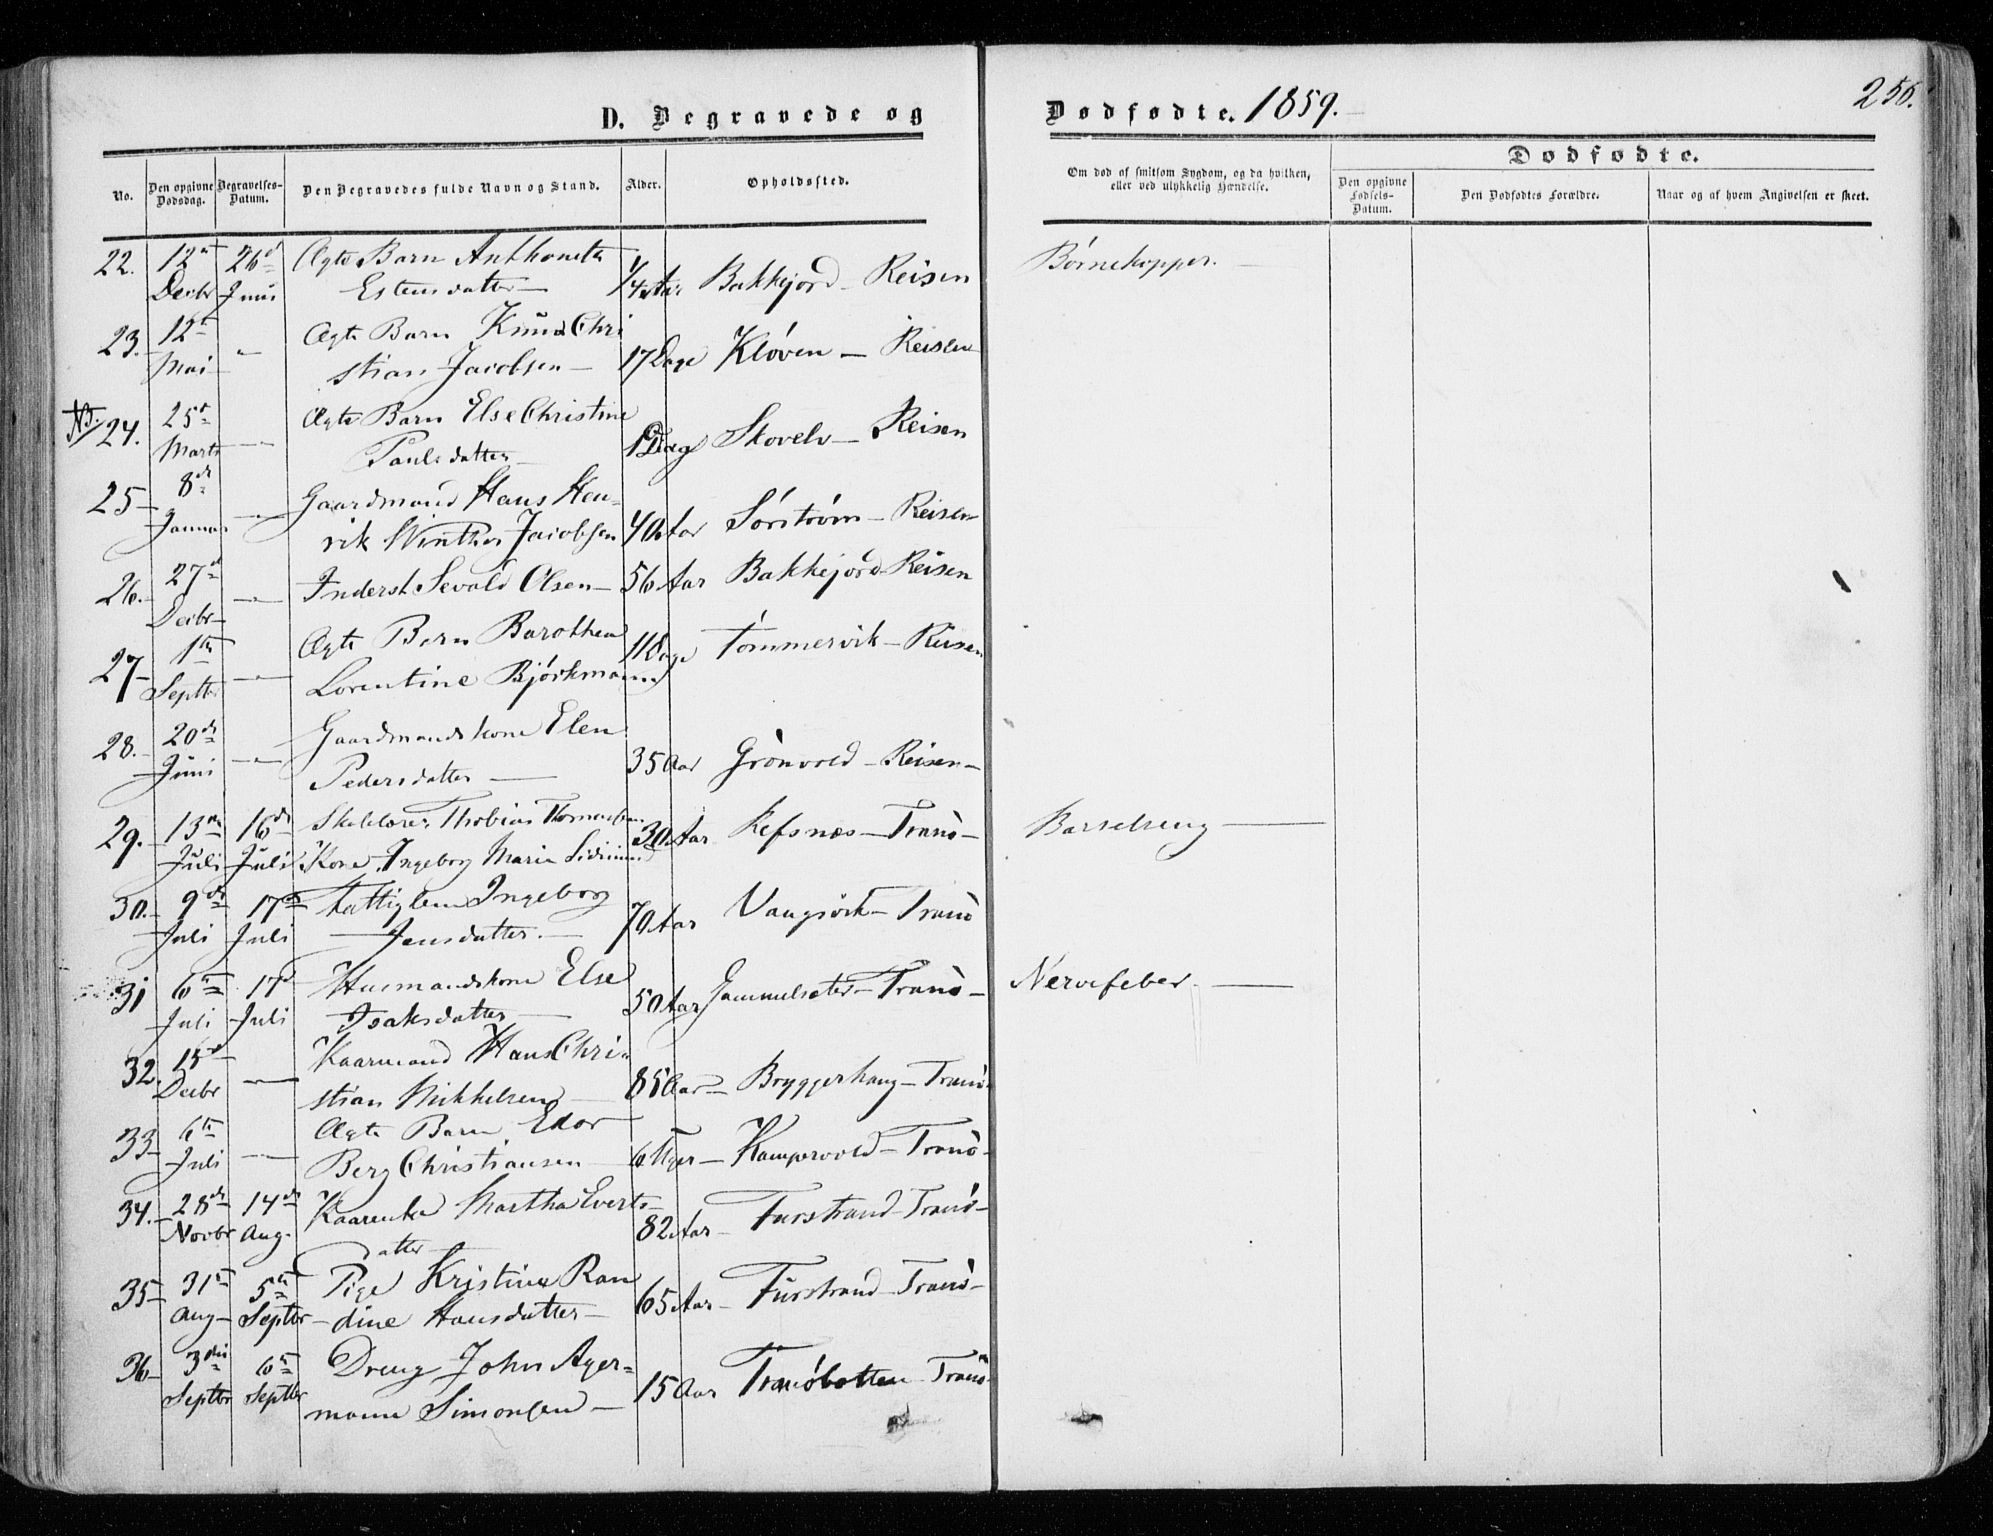 D. Begravede og Dødfødte. 1859. 256.
No. Den opgivne Dødsdag. Begravelses-Datum. Den Begravedes fulde Navn og Stand. Alder. Opholdssted. Om død af smitsom Sygdom, og da hvilken, eller ved ulykkelig Hændelse. Dødfødte.
Den opgivne Fødsels-Datum. Den Dødfødtes Forældre. Naar og af hvem Angivelsen er skeet.
22. 12te 26d Ægte Barn Anthonetta Børnekopper.
Decbr Juni Estensdatter 1/4 Aar Bakkejord - Reisen
23. 12te Ægte Barn Knud Chri
Mai " stian Jacobsen 17 Dage Kløven - Reisen
NB. 24. 25d Ægte Barn Else Christine
Marts " Paulsdatter 1 Dag Skovelv - Reisen
25 8de Gaardmand Hans Hen-
Januar " rik Winther Jacobsen 40 Aar Sørstrøm - Reisen
26. 27d Inderst Sevald Olsen 56 Aar Bakkejord Reisen
Decbr "
27 1te Ægte Barn Barothea 11 Dage Tømmervik - Reisen
Septbr " Lorentine Björkmann
28. 20de Gaardmandskone Elen
Juni " Pedersdatter 35 Aar Grönvold - Reisen
29. 13de 16de Thobias 30 Aar Refsnæs - Tranø Barselseng
Juli Juli Kone Ingeborg Maria
30. 9de 17de Fattiglem Ingeborg
Juli Juli Jensdatter. 70 Aar Vangsvik - Tranø
31 6te 17d Husmandskone Else Nervefeber.
Juli Juli Isaksdatter 50 Aar Gammelsæter - Tranø
32. 15d Kaarmand Hans Chri-
Decbr " stian Mikkelsen 85 Aar Bryggerhaug - Tranø
33 6te Ægte Barn Edor
Juli " Berg Christiansen 6 Uger Kampevold - Tranø
34. 28de 14de Kaarenke Martha Everts-
Novbr Aug. datter 82 Aar Furstrand - Tranø
35 31te 5te Pige Kristine Ran
Aug Septbr dine Hansdatter 65 Aar Furstrand - Tranø
36 3die 6te Dreng John Ager-
Septbr Septbr mann Simonsen 15 Aar Tranøbotten - Tranø